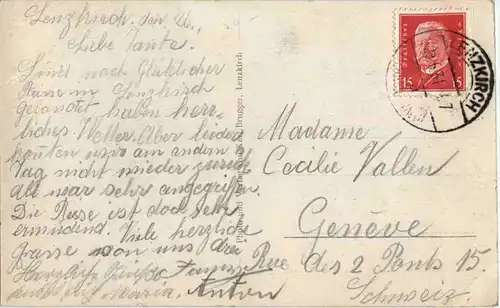 Lenzkirch, den 26.,
Liebe Tante.
Sind nach Glücklicher
Reise in Lenzkirch
gelandet haben herr-
liches Wetter. Aber leider
konten wir am andern
Tag nicht wieder zurück
all war sehr angegriffen.
Die Reise ist doch sehr
ermüdend. Viele herzliche
grüsse von uns drei
Herzliche Grüsse
Maria. Anton
Brugger, Lenzkirch
15 15
LENZKIRCH
Madame
Cecilie Vallen
Genève
Rue des 2 Ponts 15.
Schweiz.